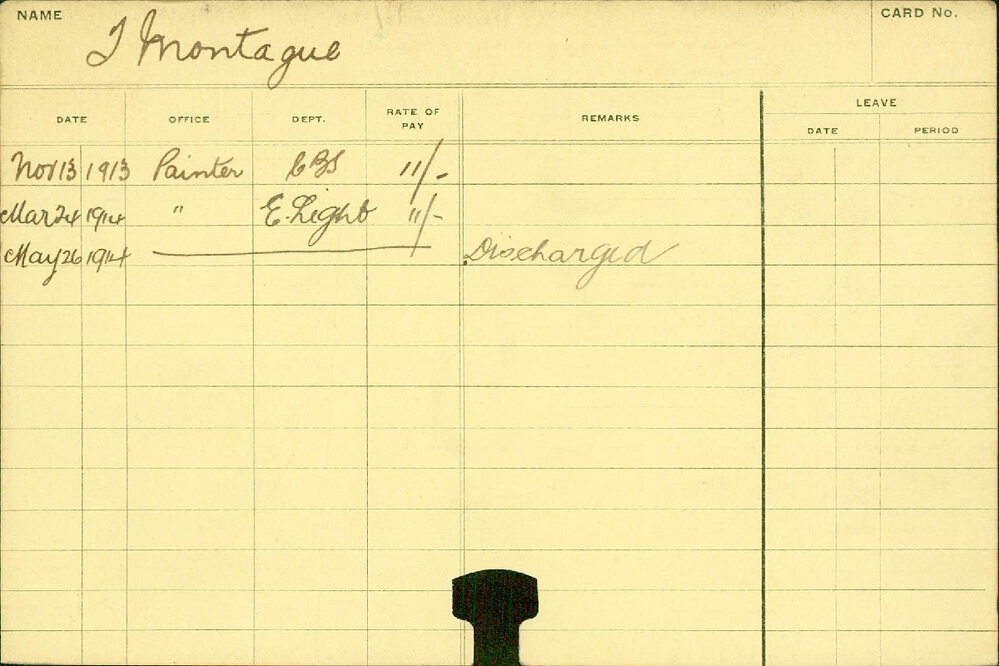 NAME CARD No.
T Montague
DATE OFFICE DEPT. RATE OF PAY REMARKS LEAVE
DATE PERIOD
Nov 13 1913 Painter CBS 11/-
Mar 24 1914 " E. Light 11/-
May 26 1914 Discharged